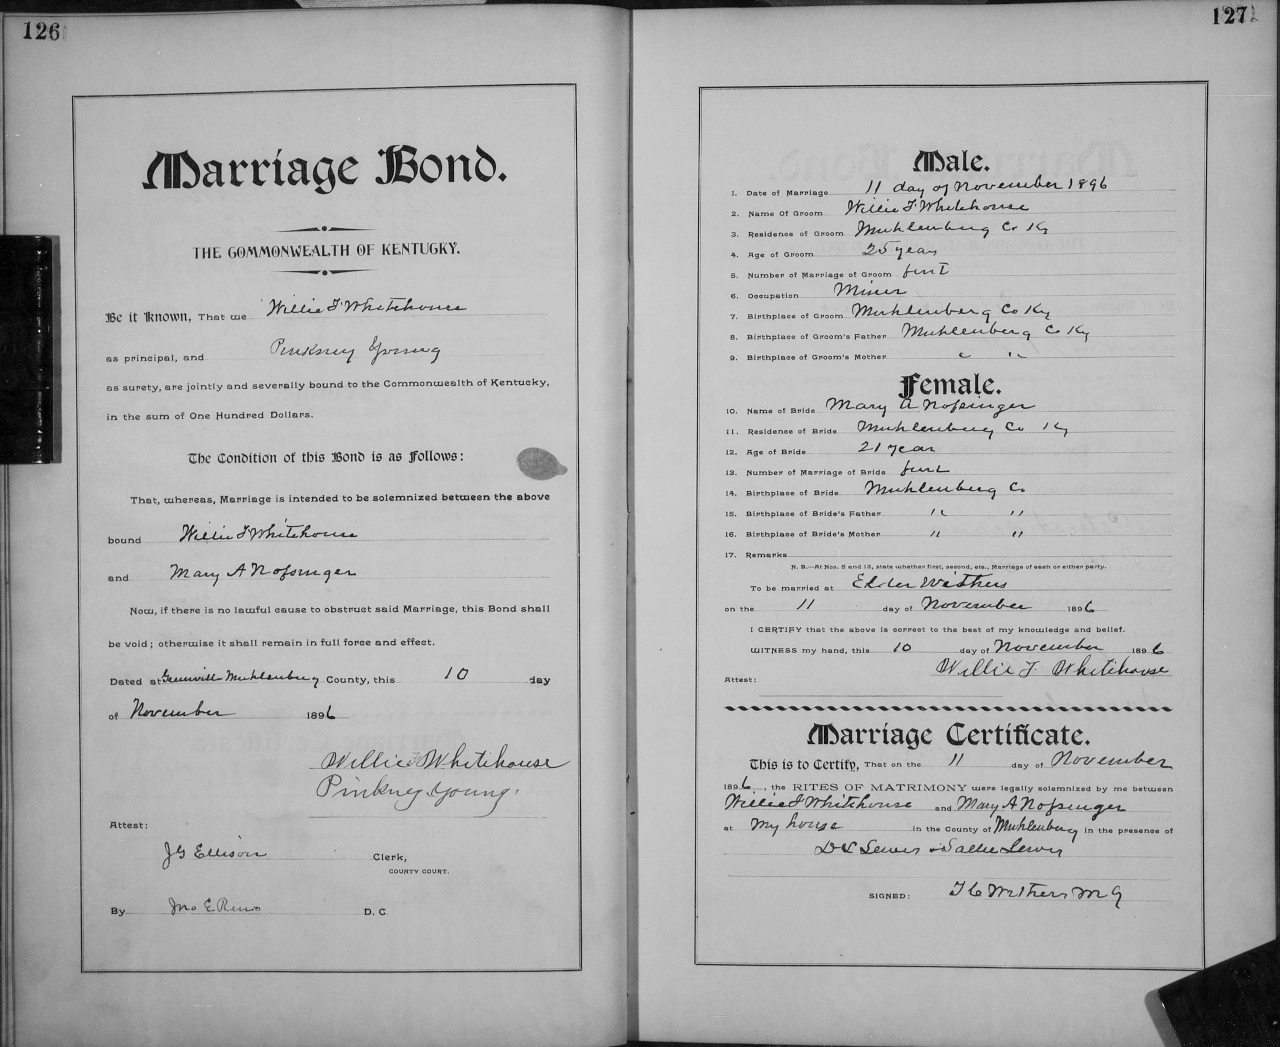 126
Marriage Bond.
THE COMMONWEALTH OF KENTUCKY.
Be it Known, That we Willie F Whitehouse
as principal, and Pinkney Young
as surety, are jointly and severally bound to the Commonwealth of Kentucky,
in the sum of One Hundred Dollars.
The Condition of this Bond is as Follows:
That, whereas, Marriage is intended to be solemnized between the above
bound Willie F Whitehouse
and Mary A Nofsinger
Now, if there is no lawful cause to obstruct said Marriage, this Bond shall
be void; otherwise it shall remain in full force and effect.
Dated at Greenville Muhlenburg County, this 10 day
of November 1896
Willie F Whitehouse
Pinkney Young.
Attest:
J G Ellison Clerk,
COUNTY COURT.
By Jno E Reno D. C.
127
Male.
1. Date of Marriage 11 day of November 1896
2. Name Of Groom Willie F Whitehouse
3. Residence of Groom Muhlenburg Co Ky
4. Age of Groom 25 years
5. Number of Marriage of Groom first
6. Occupation Miner
7. Birthplace of Groom Muhlenberg Co Ky
8. Birthplace of Groom's Father Muhlenberg Co Ky
9. Birthplace of Groom's Mother " "
Female.
10. Name of Bride Mary A Nofsinger
11. Residence of Bride Muhlenburg Co Ky
12. Age of Bride 21 year
13. Number of Marriage of Bride first
14. Birthplace of Bride Muhlenberg Co
15. Birthplace of Bride's Father " "
16. Birthplace of Bride's Mother " "
17. Remarks
N. B.—At Nos. 5 and 13, state whether first, second, etc., Marriage of each or either party.
To be married at Elder Withers
on the 11 day of November 1896
I CERTIFY that the above is correct to the best of my knowledge and belief.
WITNESS my hand, this 10 day of November 1896
Willie F Whitehouse
Attest:
Marriage Certificate.
This is to Certify, That on the 11 day of November
1896, the RITES OF MATRIMONY were legally solemnized by me between
Willie F Whitehouse and Mary A Nofsinger
at My house in the County of Muhlenberg in the presence of
D L Lewis & Sallie Lewis
SIGNED: Withers M G